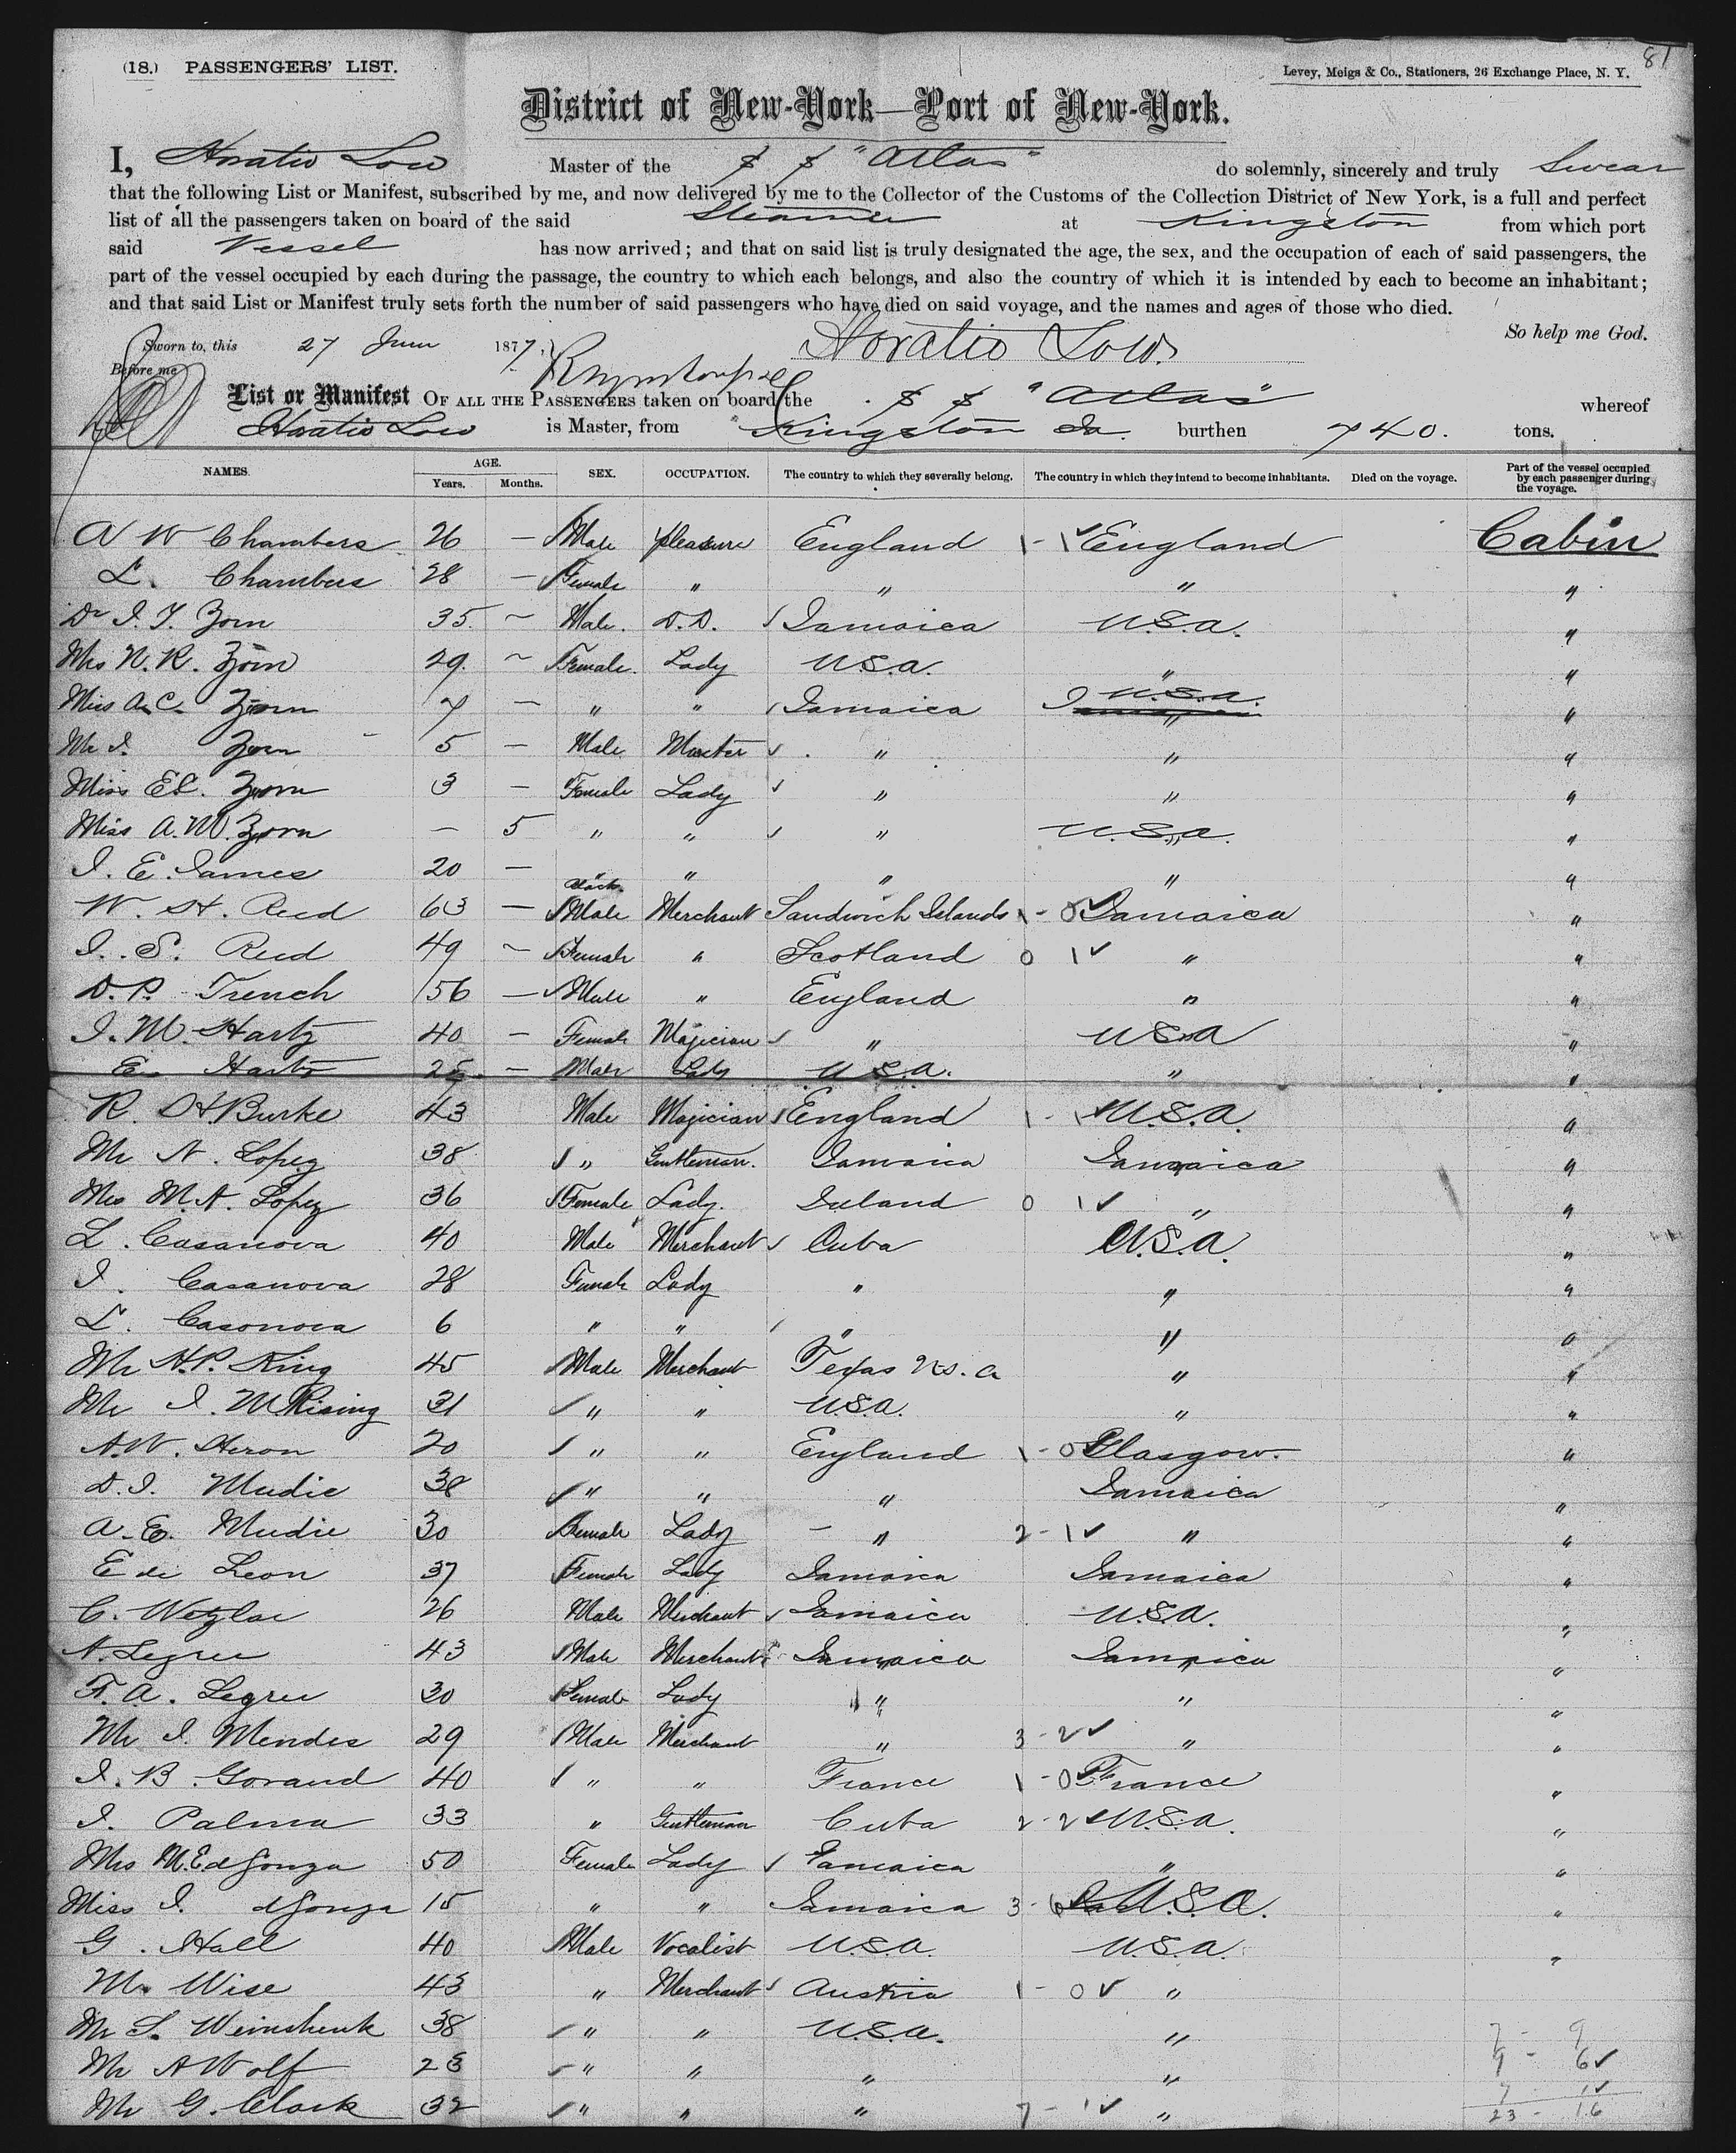 81
(18.) PASSENGERS' LIST.
Levey, Meigs & Co., Stationers, 26 Exchange Place, N. Y.
District of New-York—Port of New-York.
I, Horatio Low Master of the S S "Atlas" do solemnly, sincerely and truly Swear
that the following List or Manifest, subscribed by me, and now delivered by me to the Collector of the Customs of the Collection District of New York, is a full and perfect
list of all the passengers taken on board of the said Steamer at Kingston from which port
said Vessel has now arrived; and that on said list is truly designated the age, the sex, and the occupation of each of said passengers, the
part of the vessel occupied by each during the passage, the country to which each belongs, and also the country of which it is intended by each to become an inhabitant;
and that said List or Manifest truly sets forth the number of said passengers who have died on said voyage, and the names and ages of those who died.
So help me God.
Sworn to, this 27 June 1877. Horatio Low.
Before me
List or Manifest OF ALL THE PASSENGERS taken on board the S S "Atlas" whereof
Horatio Low is Master, from Kingston Ja. burthen 740. tons.
NAMES. AGE. Years. Months. SEX. OCCUPATION. The country to which they severally belong. The country in which they intend to become inhabitants. Died on the voyage. Part of the vessel occupied by each passenger during the voyage.
A W Chambers 26 — Male pleasure England 1 - 1 England Cabin
L. Chambers 28 — Female " " " "
Dr I. T. Zorn 35. ~ Male. D.D. Jamaica U.S.a. "
Mrs N. R. Zorn 29. ~ Female. Lady U.S.a. " "
Miss A.C. Zorn 7 — " " Jamaica U.S.a. "
Mr I. Zorn 5 — Male Master " " "
Miss E.L. Zorn 3 — Female Lady " " "
Miss A.M. Zorn — 5 " " " U.S.a. "
I. E. James 20 — " " " " "
W. H. Reed 63 — Male Merchant Sandwich Islands 1 - 0 Jamaica "
I. S. Reed 49 ~ Female " Scotland 0 1 " "
D. P. Trench 56 — Male " England " "
I. M. Hartz 40 — Female Magician " U.S.A "
E. Hartz 25 — Male Lady U.S.a. " "
R. H Burke 43 Male Magician England 1 - 1 U.S.a. "
Mr N. Lopez 38 " Gentleman. Jamaica Jamaica "
Mrs M.A. Lopez 36 Female Lady. Ireland 0 1 " "
L. Casanova 40 Male Merchant Cuba U.S.a. "
I. Casanova 28 Female Lady " " "
L. Casonova 6 " " " " "
Mr H.P. King 45 Male Merchant Texas U.S.a " "
Mr I. M. Rising 31 " " U.S.a. " "
A.W. Heron 20 " " England 1 - 0 Glasgow. "
D. I. Mudie 38 " " " Jamaica "
A. E. Mudie 30 Female Lady " 2 - 1 " "
E de Leon 37 Female Lady Jamaica Jamaica "
C. Wetzlar 26 Male Merchant Jamaica U.S.a. "
A. Legree 43 Male Merchant Jamaica Jamaica "
F. A. Legree 30 Female Lady " " "
Mr I. Mendes 29 Male Merchant " 3 - 2 " "
I. B. Gorand 40 " " France 1 - 0 France "
I. Palma 33 " Gentleman Cuba 2 - 2 U.S.a. "
Mrs M.E dSouza 50 Female Lady Jamaica " "
Miss I. dSouza 15 " " Jamaica 3 - 6 U.S.a. "
G. Hall 40 Male Vocalist U.S.a. U.S.a. "
M. Wise 43 " Merchant Austria 1 - 0 "
Mr S. Weinshenk 38 " " U.S.a. "
Mr A Wolf 23 " " " "
Mr G. Clark 32 " " " 7 - 1 "
7 - 9
9 - 6
7 - 1
23 - 16